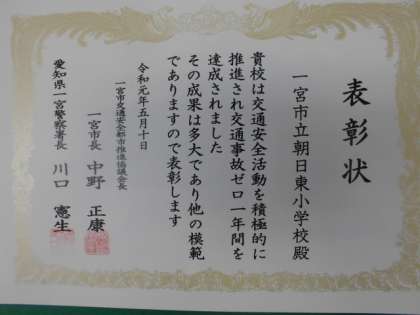 表彰状
一宮市立朝日東小学校殿
貴校は交通安全活動を積極的に
推進され交通事故ゼロ一年間を
達成されました
その成果は多大であり他の模範
でありますので表彰します
令和元年五月十日
一宮市交通安全都市推進協議会長
一宮市長 中野 正康
愛知県一宮警察署長 川口 憲生